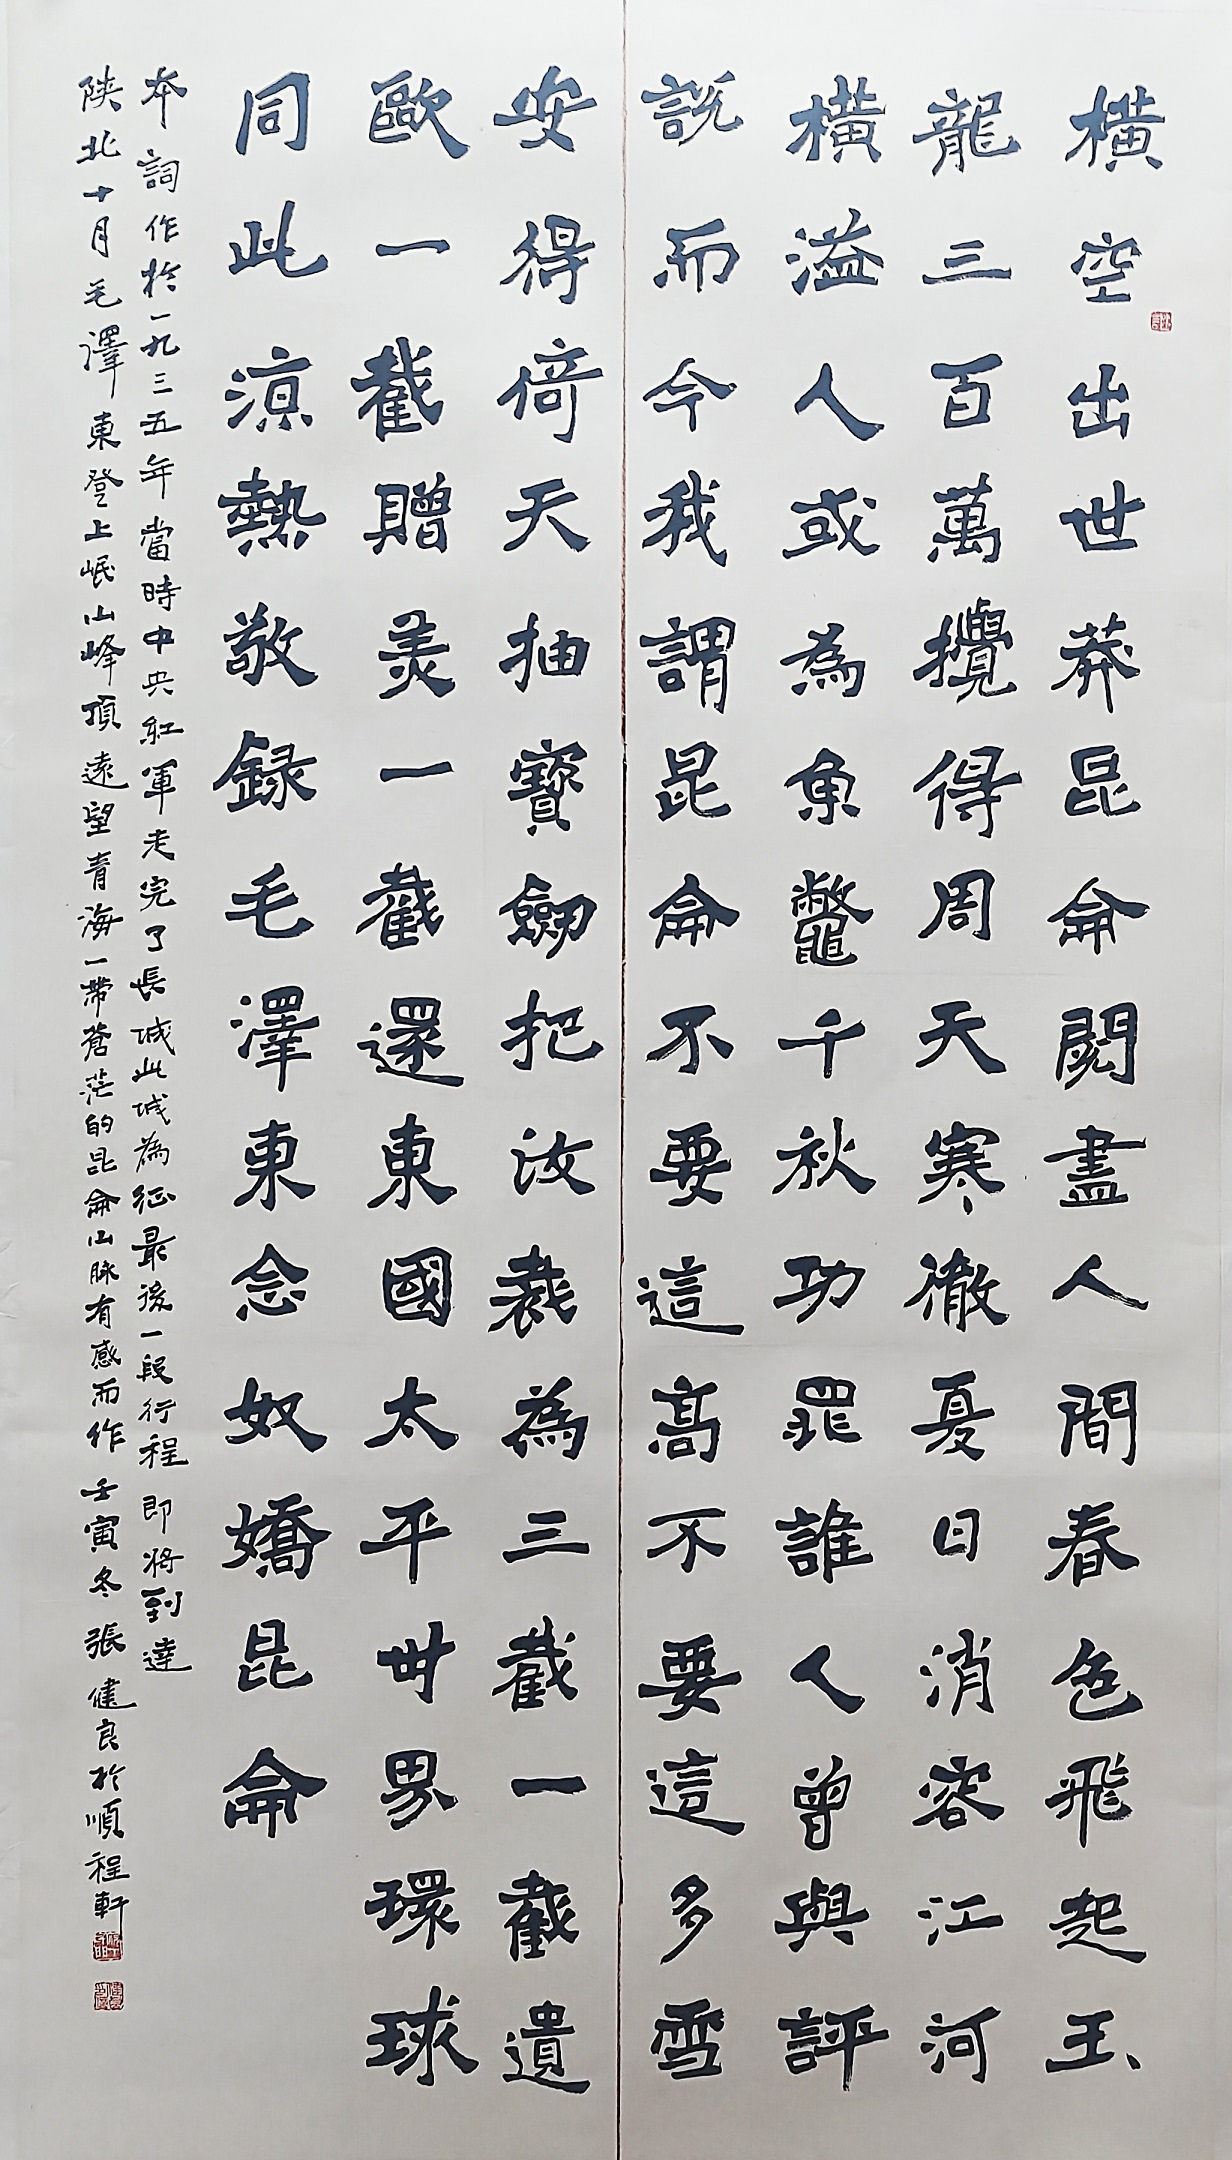 橫空出世莽昆侖閱盡人間春色飛起玉
龍三百萬攪得周天寒徹夏日消容江河
橫溢人或為魚鼈千秋功罪誰人曾與評
說而今我謂昆侖不要這高不要這多雪
安得倚天抽寶劒把汝裁為三截一截遺
歐一截贈美一截還東國太平世界環球
同此涼熱敬録毛澤東念奴嬌昆侖
本詞作於一九三五年當時中央紅軍走完了長城此城為征最後一段行程即將到達
陝北十月毛澤東登上岷山峰頂遠望青海一帶蒼茫的昆侖山脉有感而作壬寅冬張健良於順程軒